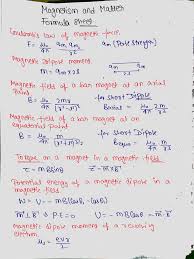 Magnetism and Matter
Formula Sheet
Coulomb's law of magnetic force.
F = μ₀/4π qm₁ qm₂/r² qm (Pole Strength)
Magnetic dipole moment
m = qm × 2l
Magnetic field of a bar magnet at an axial
Point.
B = μ₀/4π 2mr/(r²-l²)² for short Dipole B = μ₀/4π 2m/r³
Magnetic field of a bar magnet at an
equatorial Point
B = μ₀/4π m/(r²+l²)^3/2 for short Dipole B = μ₀/4π m/r³
Torque on a magnet in a magnetic field
τ = mB sinθ τ = m×B
Potential energy of a magnetic dipole in a
magnetic field
W = U = -mB(cosθ₂ - cosθ₁)
P.E = 0 U = -mB cosθ
Magnetic dipole moment of a revolving
electron.
μ = evr/2